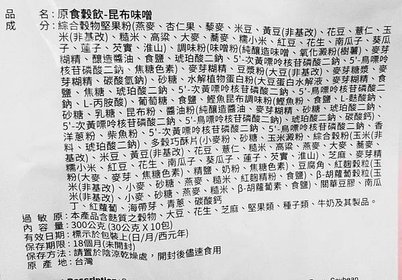 品名:原食穀飲-昆布味噌
成分:綜合穀物堅果粉(燕麥、杏仁果、藜麥、米豆、黃豆(非基改)、花豆、薏仁、玉
米(非基改)、糙米、高粱、大麥、蕎麥、糯小米、紅豆、花生、南瓜子、葵瓜
子、蓮子、芡實、淮山)、調味粉(味噌粉(純釀造味噌、氧化澱粉(樹薯)、麥芽
糊精、釀造醬油、食鹽、琥珀酸二鈉、5'-次黃嘌呤核苷磷酸二鈉、5'-鳥嘌呤
核苷磷酸二鈉、焦糖色素)、麥芽糊精、豆漿粉(大豆(非基改)、麥芽糖漿、麥
芽糊精、碳酸氫鈉)、砂糖、水解植物蛋白粉(大豆蛋白水解液、麥芽糊精、食
鹽、焦糖、琥珀酸二鈉、5'-次黃嘌呤核苷磷酸二鈉、5'-鳥嘌呤核苷磷酸二
鈉、L-丙胺酸)、葡萄糖、食鹽、鰹魚風味調味粉(鰹魚粉、食鹽、L-麩酸鈉、
砂糖、乳糖、昆布粉、醬油粉(純釀造醬油、麥芽糊精、砂糖、琥珀酸二鈉、
5'-次黃嘌呤核苷磷酸二鈉、5'-鳥嘌呤核苷磷酸二鈉、焦糖色素)、碳酸鈣、
5'-次黃嘌呤核苷磷酸二鈉、5'-鳥嘌呤核苷磷酸二鈉、
洋蔥粉、柴魚粉、5'-次黃嘌呤核苷磷酸二鈉、5'-鳥嘌呤核苷磷酸二鈉、香
料、琥珀酸二鈉)、多穀巧酥片(小麥粉、砂糖、玉米澱粉、綜合穀粉(玉米(非
基改)、米豆、黃豆(非基改)、花豆、薏仁、糙米、高粱、燕麥、大麥、蕎麥、
糯小米、紅豆、花生、南瓜子、葵瓜子、蓮子、芡實、淮山)、芝麻、麥芽精
粉(大麥、麥芽、焦糖色素)、精鹽、奶粉、無水奶油)、豆腐角、紅麴穀粒(玉
米(非基改)、小麥、砂糖、燕麥、糙米、紅麴精粉、食鹽)、β-胡蘿蔔穀粒(玉
米(非基改)、小麥、砂糖、燕麥、糙米、β-胡蘿蔔素、食鹽)、關華豆膠、南瓜
丁、紅蘿蔔、海帶芽、青蔥、碳酸鈣
過敏原:本產品含麩質之穀物、大豆、花生、芝麻、堅果類、種子類、牛奶及其製品。
內容量:300公克(30公克X10包)
有效日期:標示於包裝上(日/月/西元年)
保存期限:18個月(未開封)
保存方法:請置於陰涼乾燥處,開封後儘速食用
原產地:台灣